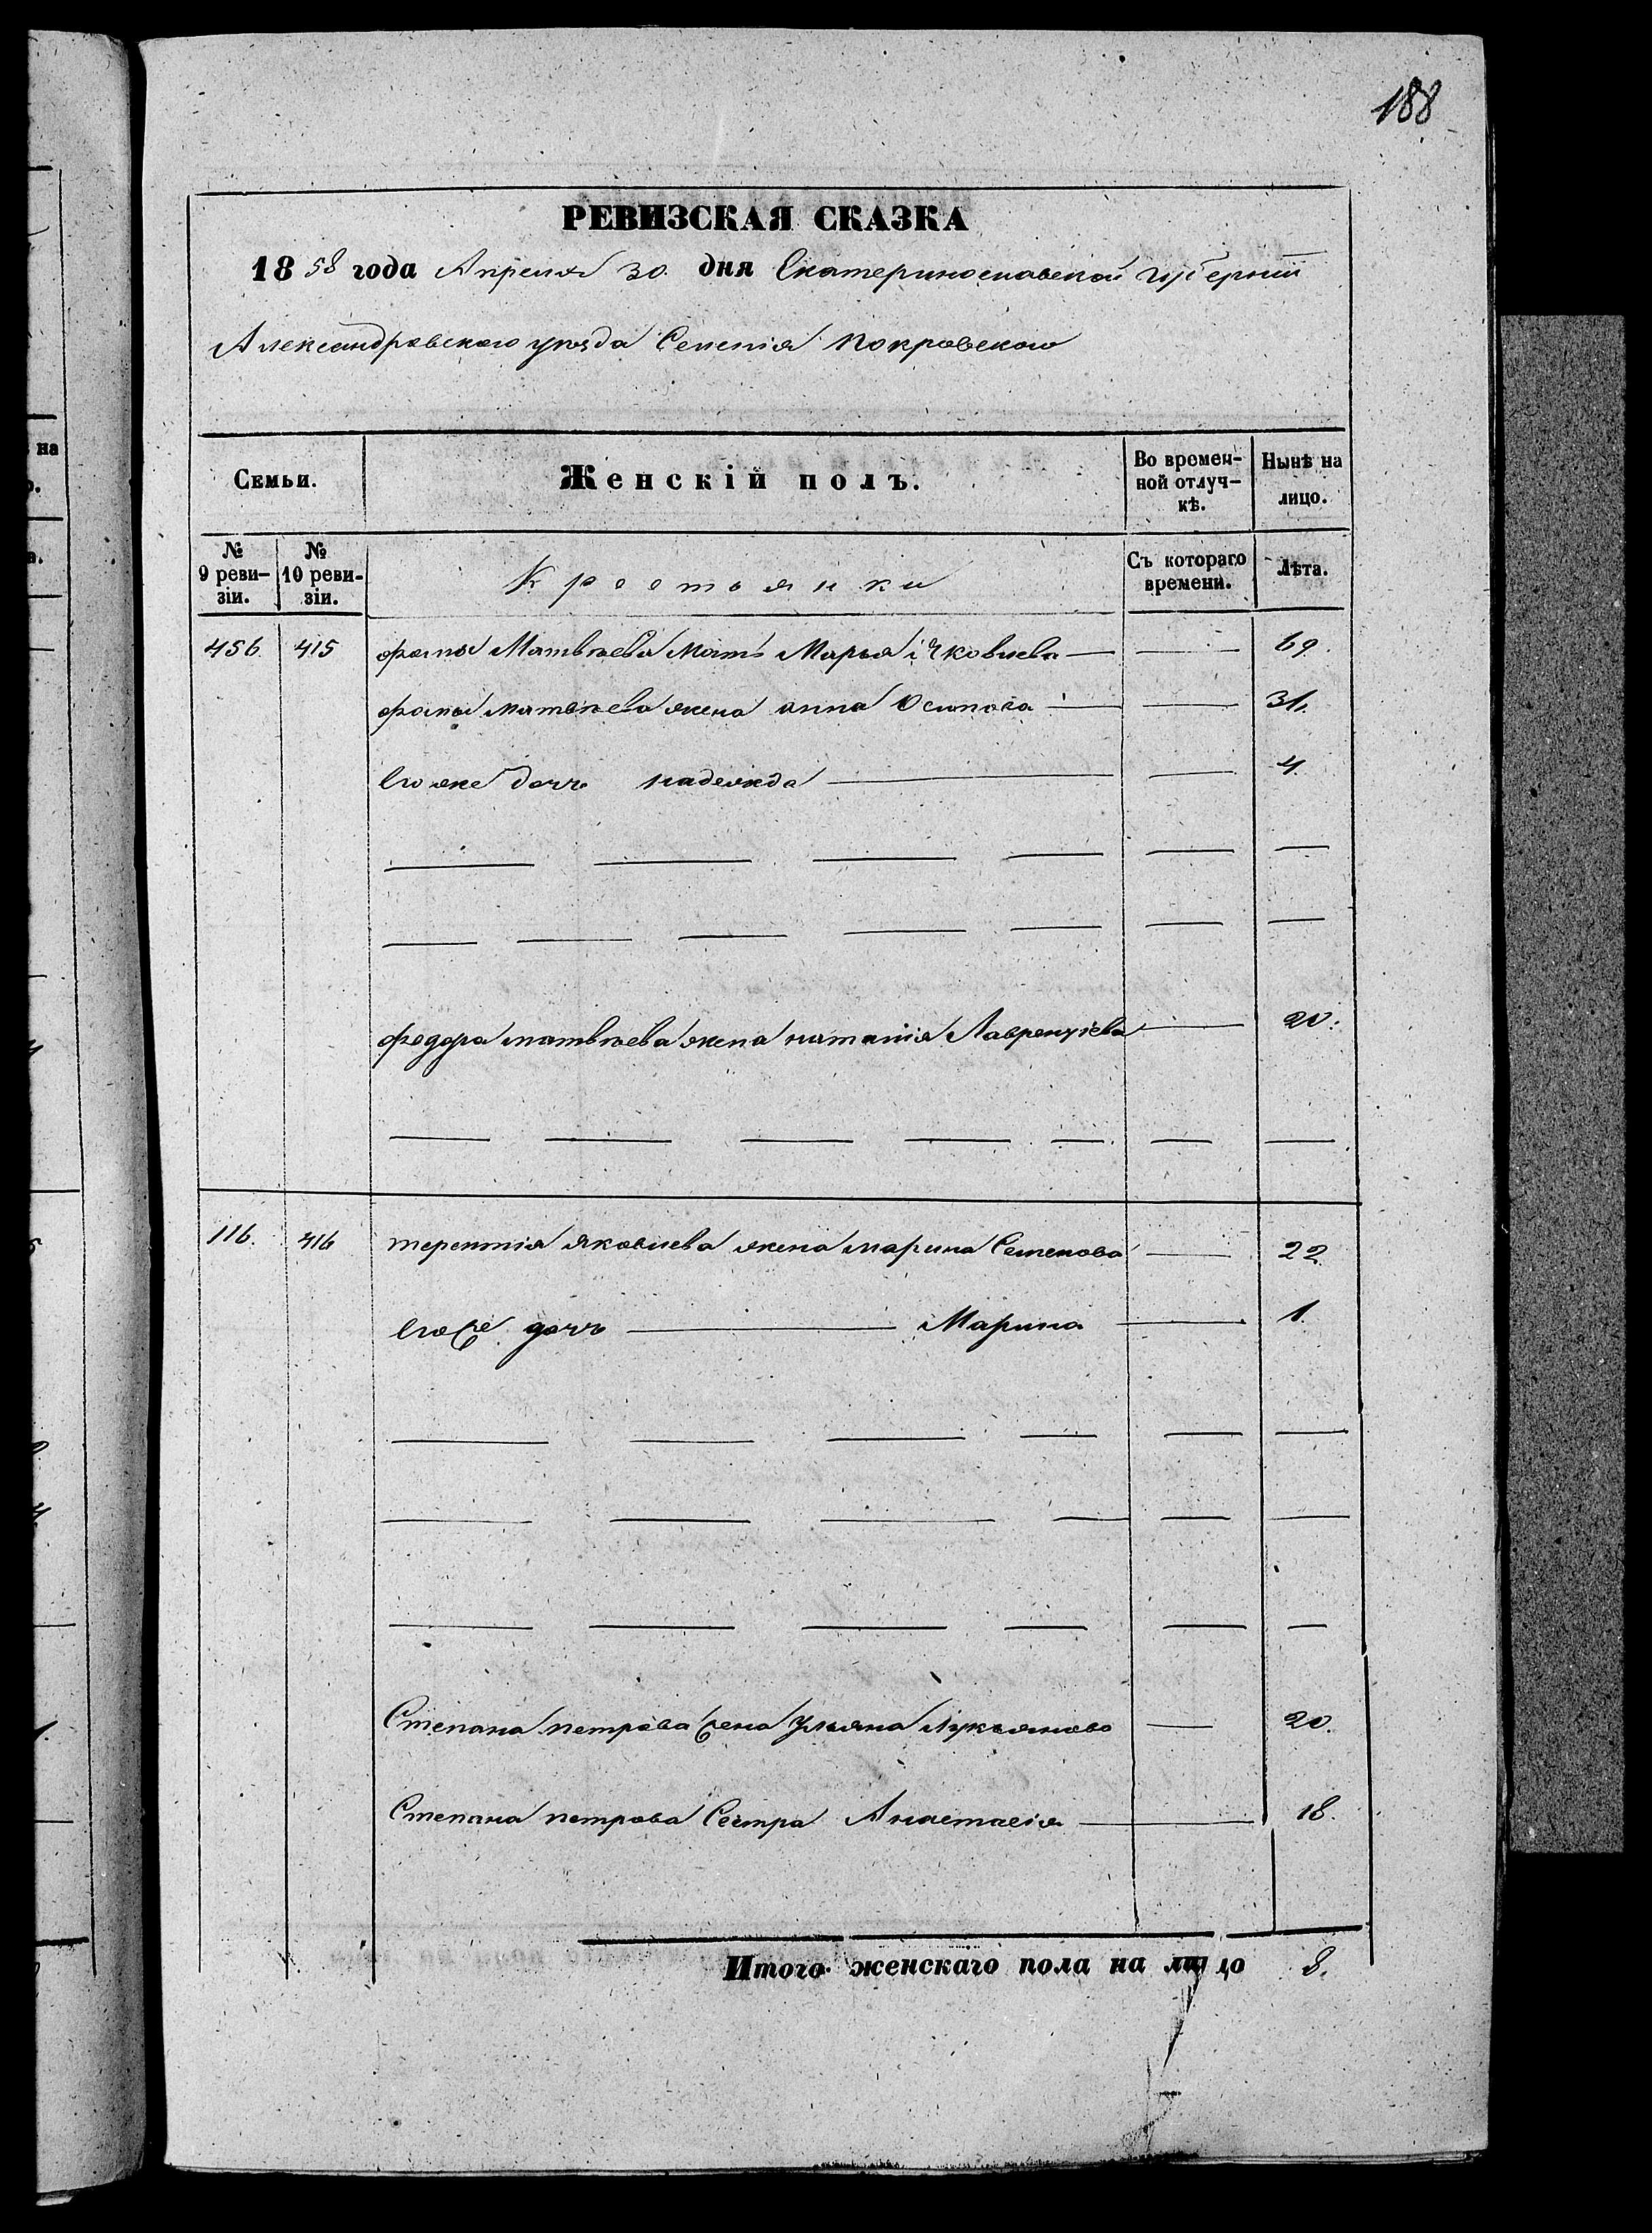 188
РЕВИЗСКАЯ СКАЗКА
1858 года Апреля 30 дня Екатеринославской губернии
Александровского уезда Селенія покровского
Семьи. Женскій полъ. Во времен-ной отлуч-кѣ. Нынѣ на лицо.
№ 9 реви-зіи. № 10 реви-зіи. Крестьянки Съ котораго времени. Лѣта.
456 415 фомы Матвѣева Мать Марья Яковлева — — 69.
фомы матвѣева жена анна Осипова — — 31.
Его же дочь надежда — — 4.
федора матвѣева жена наталія Лаврентіева — 20.
116. 416 терентія яковлева жена марина Семенова — 22
Его же дочь — Марина — 1.
Степана петрова жена Ульяна Лукьянова — 20.
Степана петрова Сестра Анастасія — 18.
Итого женскаго пола на лицо 8.